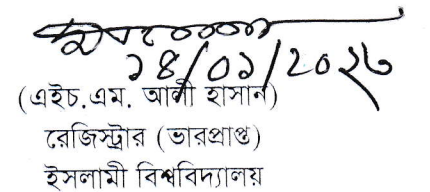 ১৪/০১/২০২৩
(এইচ.এম. আলী হাসান)
রেজিস্ট্রার (ভারপ্রাপ্ত)
ইসলামী বিশ্ববিদ্যালয়